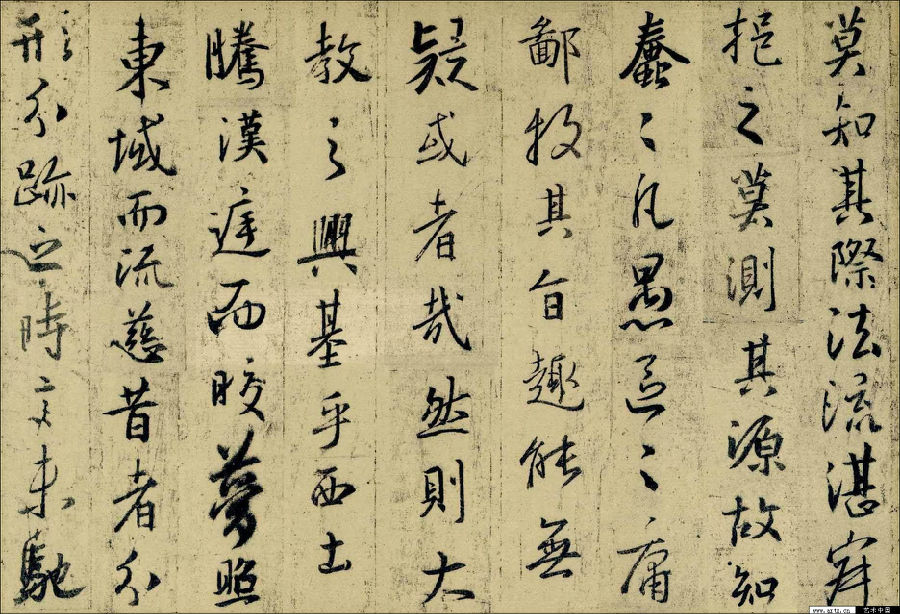 莫知其際法流湛寂
挹之莫測其源故知
蠢〻凡愚區〻庸
鄙投其旨趣能無
疑或者哉然則大
教之興基乎西土
騰漢庭而晈夢照
東域而流慈昔者分
形分跡之時言未馳
www.artx.cn 艺术中国